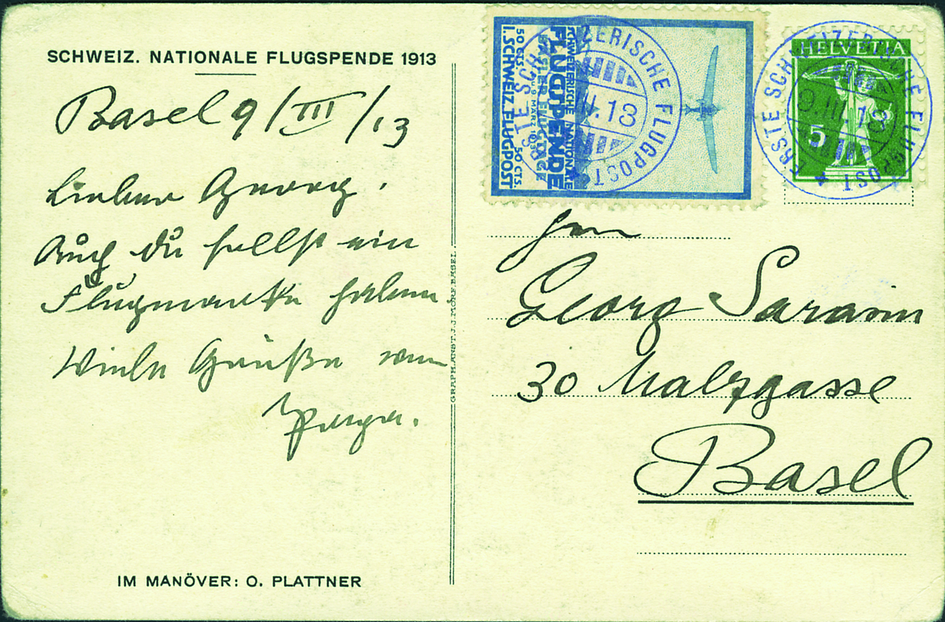 SCHWEIZ. NATIONALE FLUGSPENDE 1913
Basel 9/III/13
Lieber Georg.
Auch du sollst ein
Flugmarke haben.
Viele Grüße vom
Papa.
IM MANÖVER: O. PLATTNER
GRAPH. ANST. J.J. MORF, BASEL.
SCHWEIZERISCHE NATIONALE
FLUGSPENDE
BASLER FLUGTAGE
I. SCHWEIZ. FLUGPOST
50 CTS. 50 CTS.
ERSTE SCHWEIZERISCHE FLUGPOST
III.13
HELVETIA
5
ERSTE SCHWEIZERISCHE FLUGPOST
9.III.13
Herrn
Georg Sarasin
30 Malzgasse
Basel